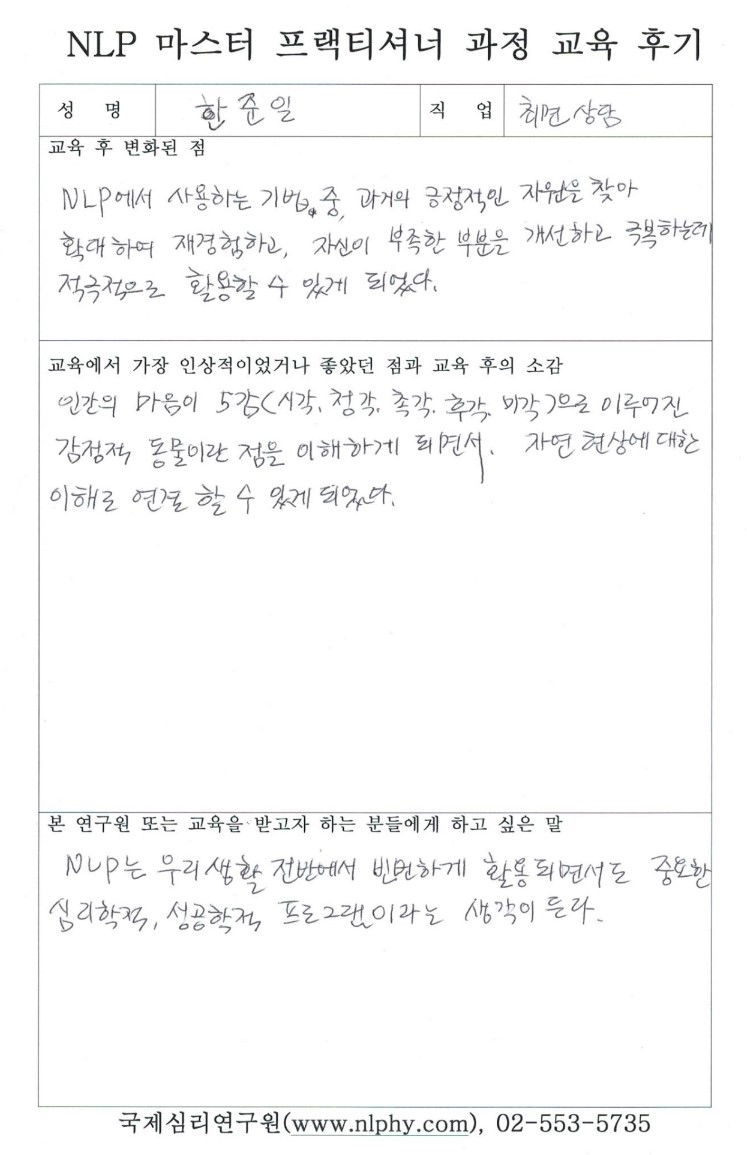 NLP 마스터 프랙티셔너 과정 교육 후기
성 명 한준일 직 업 최면상담
교육 후 변화된 점
NLP에서 사용하는 기법 중, 과거의 긍정적인 자원을 찾아
확대하여 재경험하고, 자신이 부족한 부분을 개선하고 극복하는데
적극적으로 활용할 수 있게 되었다.
교육에서 가장 인상적이었거나 좋았던 점과 교육 후의 소감
인간의 마음이 5감(시각, 청각, 촉각, 후각, 미각)으로 이루어진
감정적 동물이란 점을 이해하게 되면서, 자연 현상에 대한
이해로 연결 할 수 있게 되었다.
본 연구원 또는 교육을 받고자 하는 분들에게 하고 싶은 말
NLP는 우리 생활 전반에서 빈번하게 활용되면서도 중요한
심리학적, 성공학적 프로그램이라는 생각이 든다.
국제심리연구원(www.nlphy.com), 02-553-5735